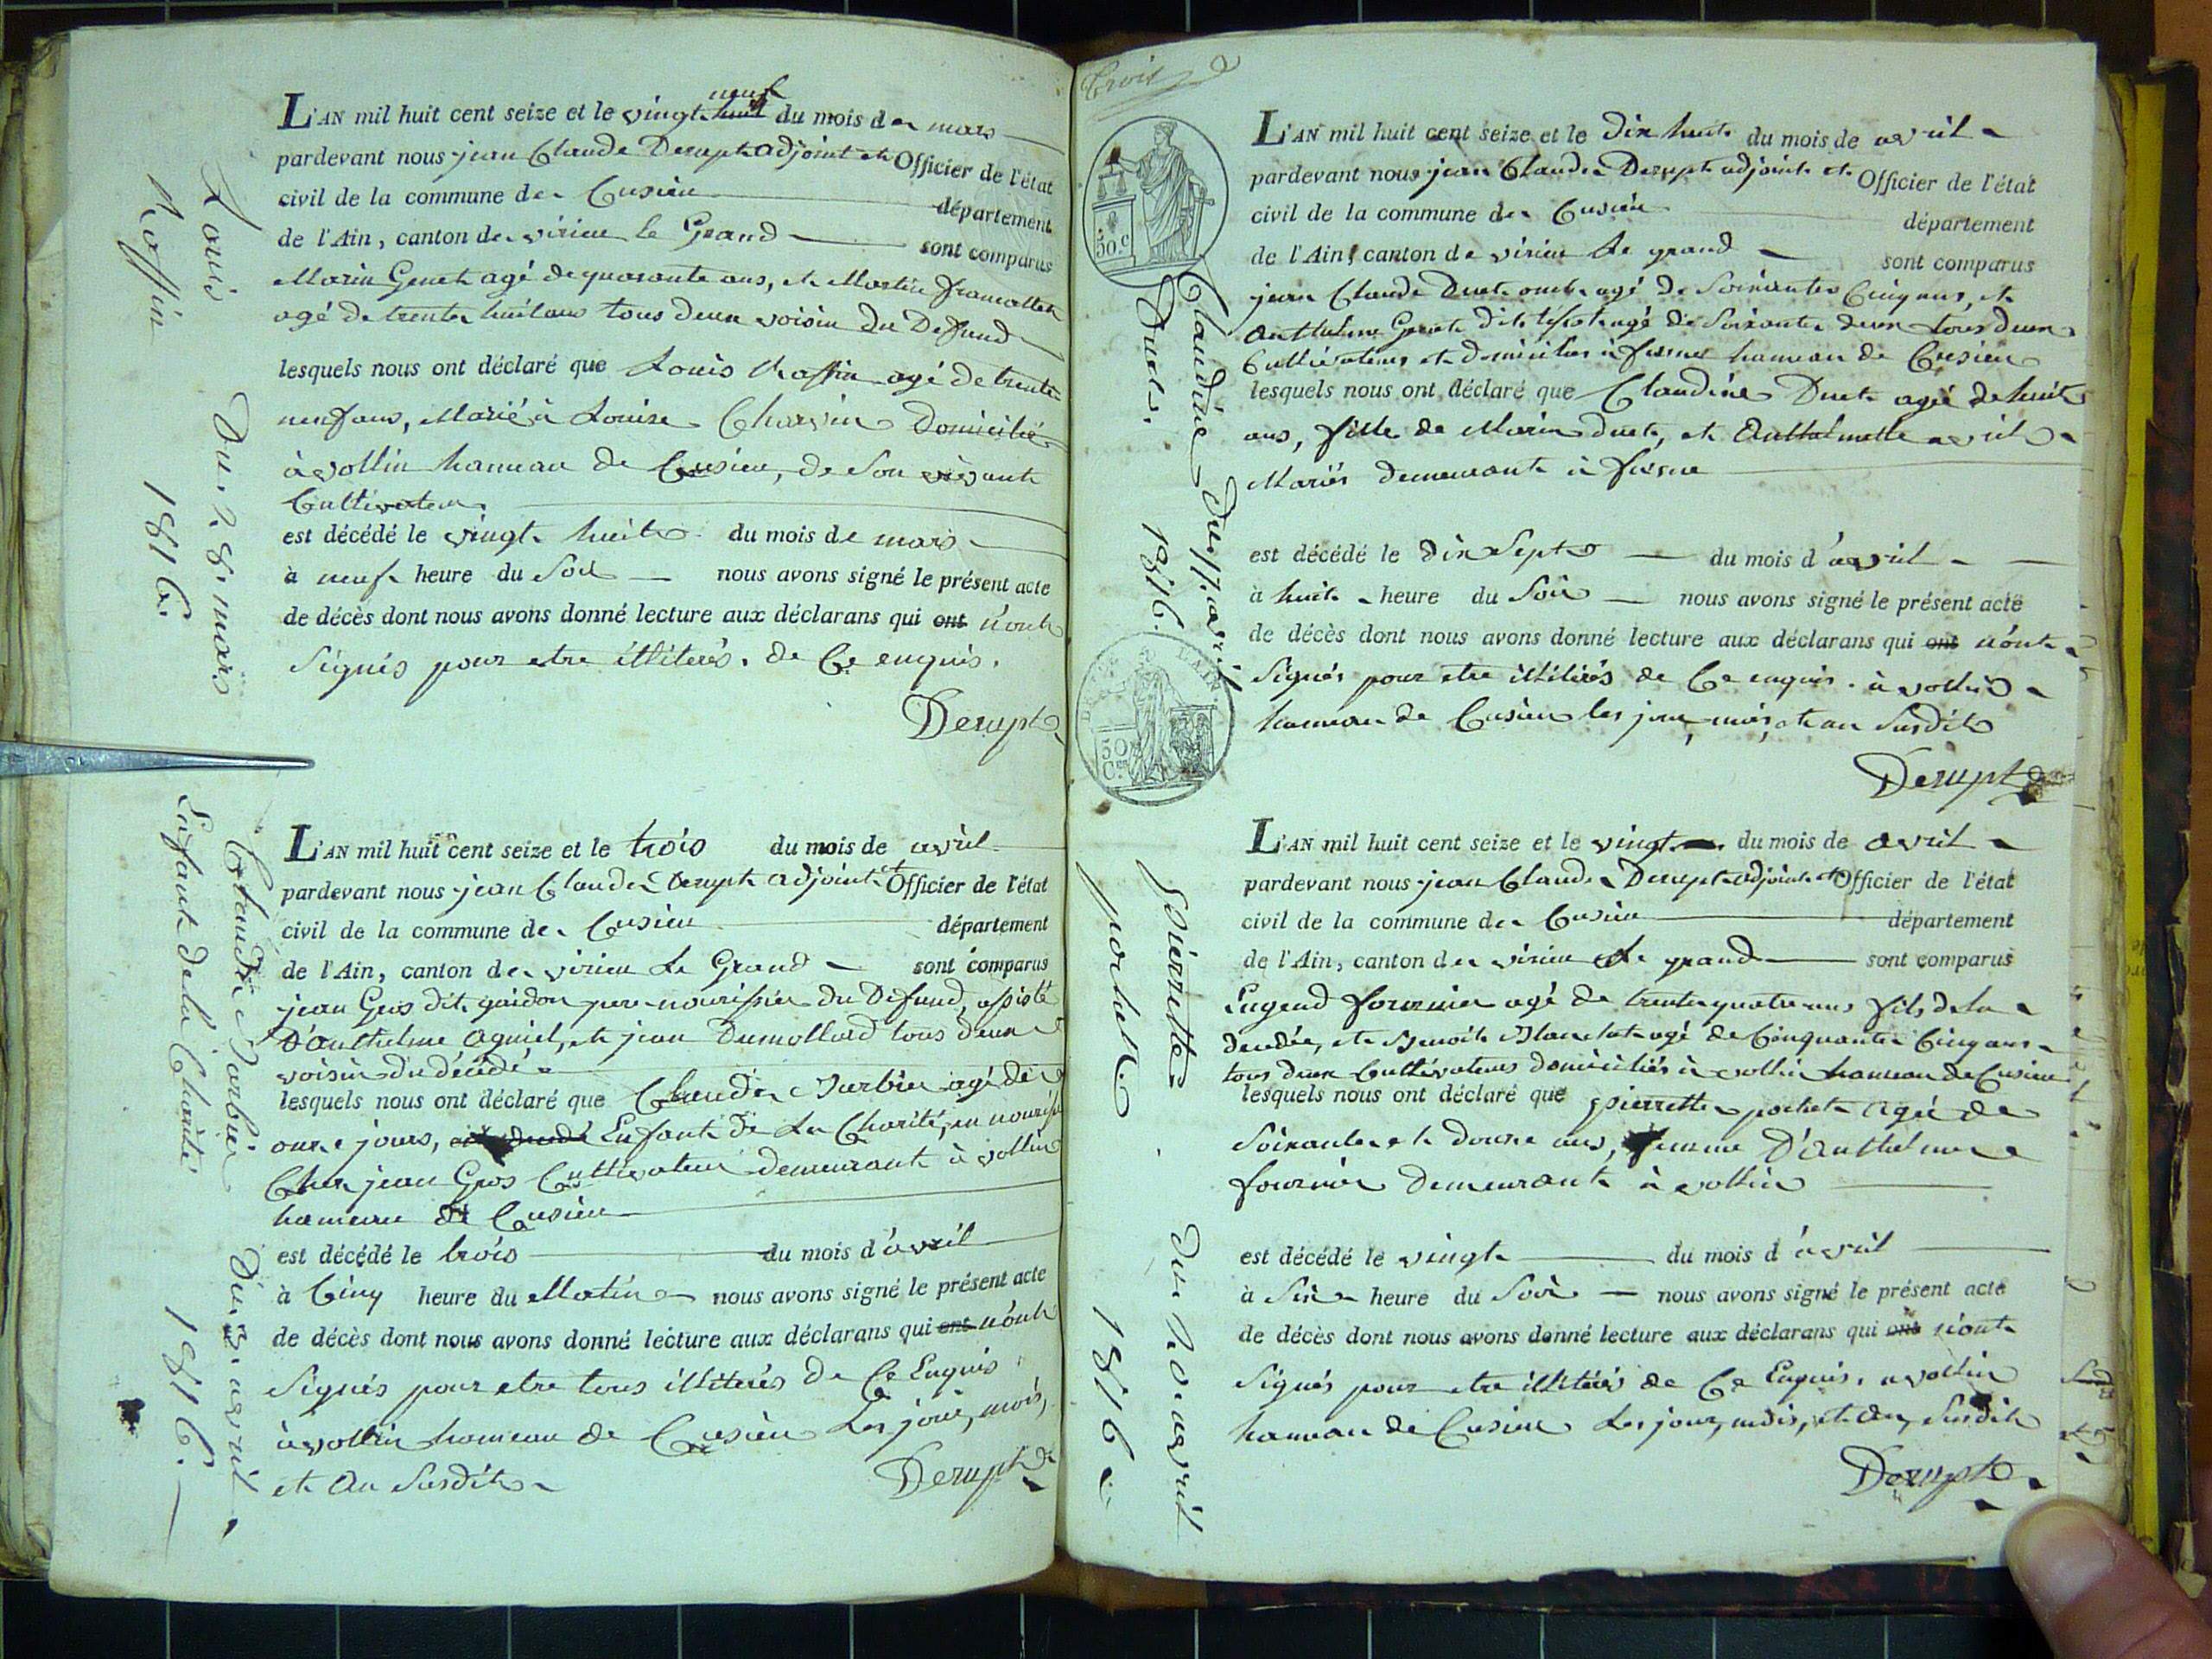 Louis Roffin Du 28. mars 1816.
L'AN mil huit cent seize et le vingt huit neuf du mois de mars
pardevant nous jean Claude Derupt adjoint et Officier de l'état
civil de la commune de Cusieu département
de l'Ain, canton de virieu le Grand sont comparus
Marin Genet agé de quarante ans, et Martin
agé de trente huit ans tous deux voisin du Deffund
lesquels nous ont déclaré que Louis Roffin agé de trente
neuf ans, Marié à Louise Charvin Domicilié
à vollin hameau de Cusieu, de Son vivant
Cultivateur
est décédé le vingt huit du mois de mars
à neuf heure du Soir nous avons signé le présent acte
de décès dont nous avons donné lecture aux déclarans qui ont n'ont
Signés pour etre illiterés. de Ce enquis.
Derupt
Claude Barbier Du 3. avril 1816.
Enfant de la Charité
L'AN mil huit cent seize et le trois du mois de avril
pardevant nous jean Claude Derupt adjoint et Officier de l'état
civil de la commune de Cusieu département
de l'Ain, canton de virieu Le Grand sont comparus
jean Gros dit guidon pere nourissier du Defund, assisté
D'anthelme aguiel, et jean Dumollard tous deux
voisin du décédé
lesquels nous ont déclaré que Claude Barbier agé de
onze jours, Enfant de La Charité, en nouriss
Chez jean Gros Cultivateur demeurant à vollin
hameau de Cusieu
est décédé le trois du mois d'avril
à Cinq heure du Matin nous avons signé le présent acte
de décès dont nous avons donné lecture aux déclarans qui ont n'ont
Signés pour etre tous illiterés De Ce Enquis
à vollin hameau de Cusieu Les jour, mois,
et An Susdit
Derupt
Trois
50.c
Claudine Duet. Du 17. avril 1816.
L'AN mil huit cent seize et le Dix huit du mois de avril
pardevant nous jean Claude Derupt adjoint et Officier de l'état
civil de la commune de Cusieu département
de l'Ain, canton de virieu Le grand sont comparus
jean Claude Duet oncle agé de Soixante Cinq ans, et
Anthelme Genet dit agé de Soixante deux tous deux
Cultivateurs et domiciliés à hameau de Cusieu
lesquels nous ont déclaré que Claudine Duet agée de huit
ans, fille de Marin duet, et Anthelmette avril
Mariés demeurant à
est décédé le Dix Sept du mois d'avril
à huit heure du Soir nous avons signé le présent acte
de décès dont nous avons donné lecture aux déclarans qui ont n'ont
Signés pour etre illiterés de Ce enquis. à vollin
hameau de Cusieu les jour, mois, et an Susdit
Derupt
L'AIN
50 Cmes
Pierrette pochet Du 20. avril 1816
L'AN mil huit cent seize et le vingt du mois de avril
pardevant nous jean Claude Derupt adjoint et Officier de l'état
civil de la commune de Cusieu département
de l'Ain, canton de virieu Le grand sont comparus
Eugend fournier agé de trente quatre ans fils de la
decedée, et Benoit Blanchet agé de Cinquante Cinq ans
tous deux Cultivateurs domiciliés à vollin hameau de Cusieu
lesquels nous ont déclaré que pierrette pochet agée de
Soixante et douze ans, femme D'Anthelme
fournier demeurant à vollin
est décédé le vingt du mois d'avril
à Six heure du Soir nous avons signé le présent acte
de décès dont nous avons donné lecture aux déclarans qui ont n'ont
Signés pour etre illiterés de Ce Enquis, à vollin
hameau de Cusieu Les jour, mois, et an, Susdit
Derupt